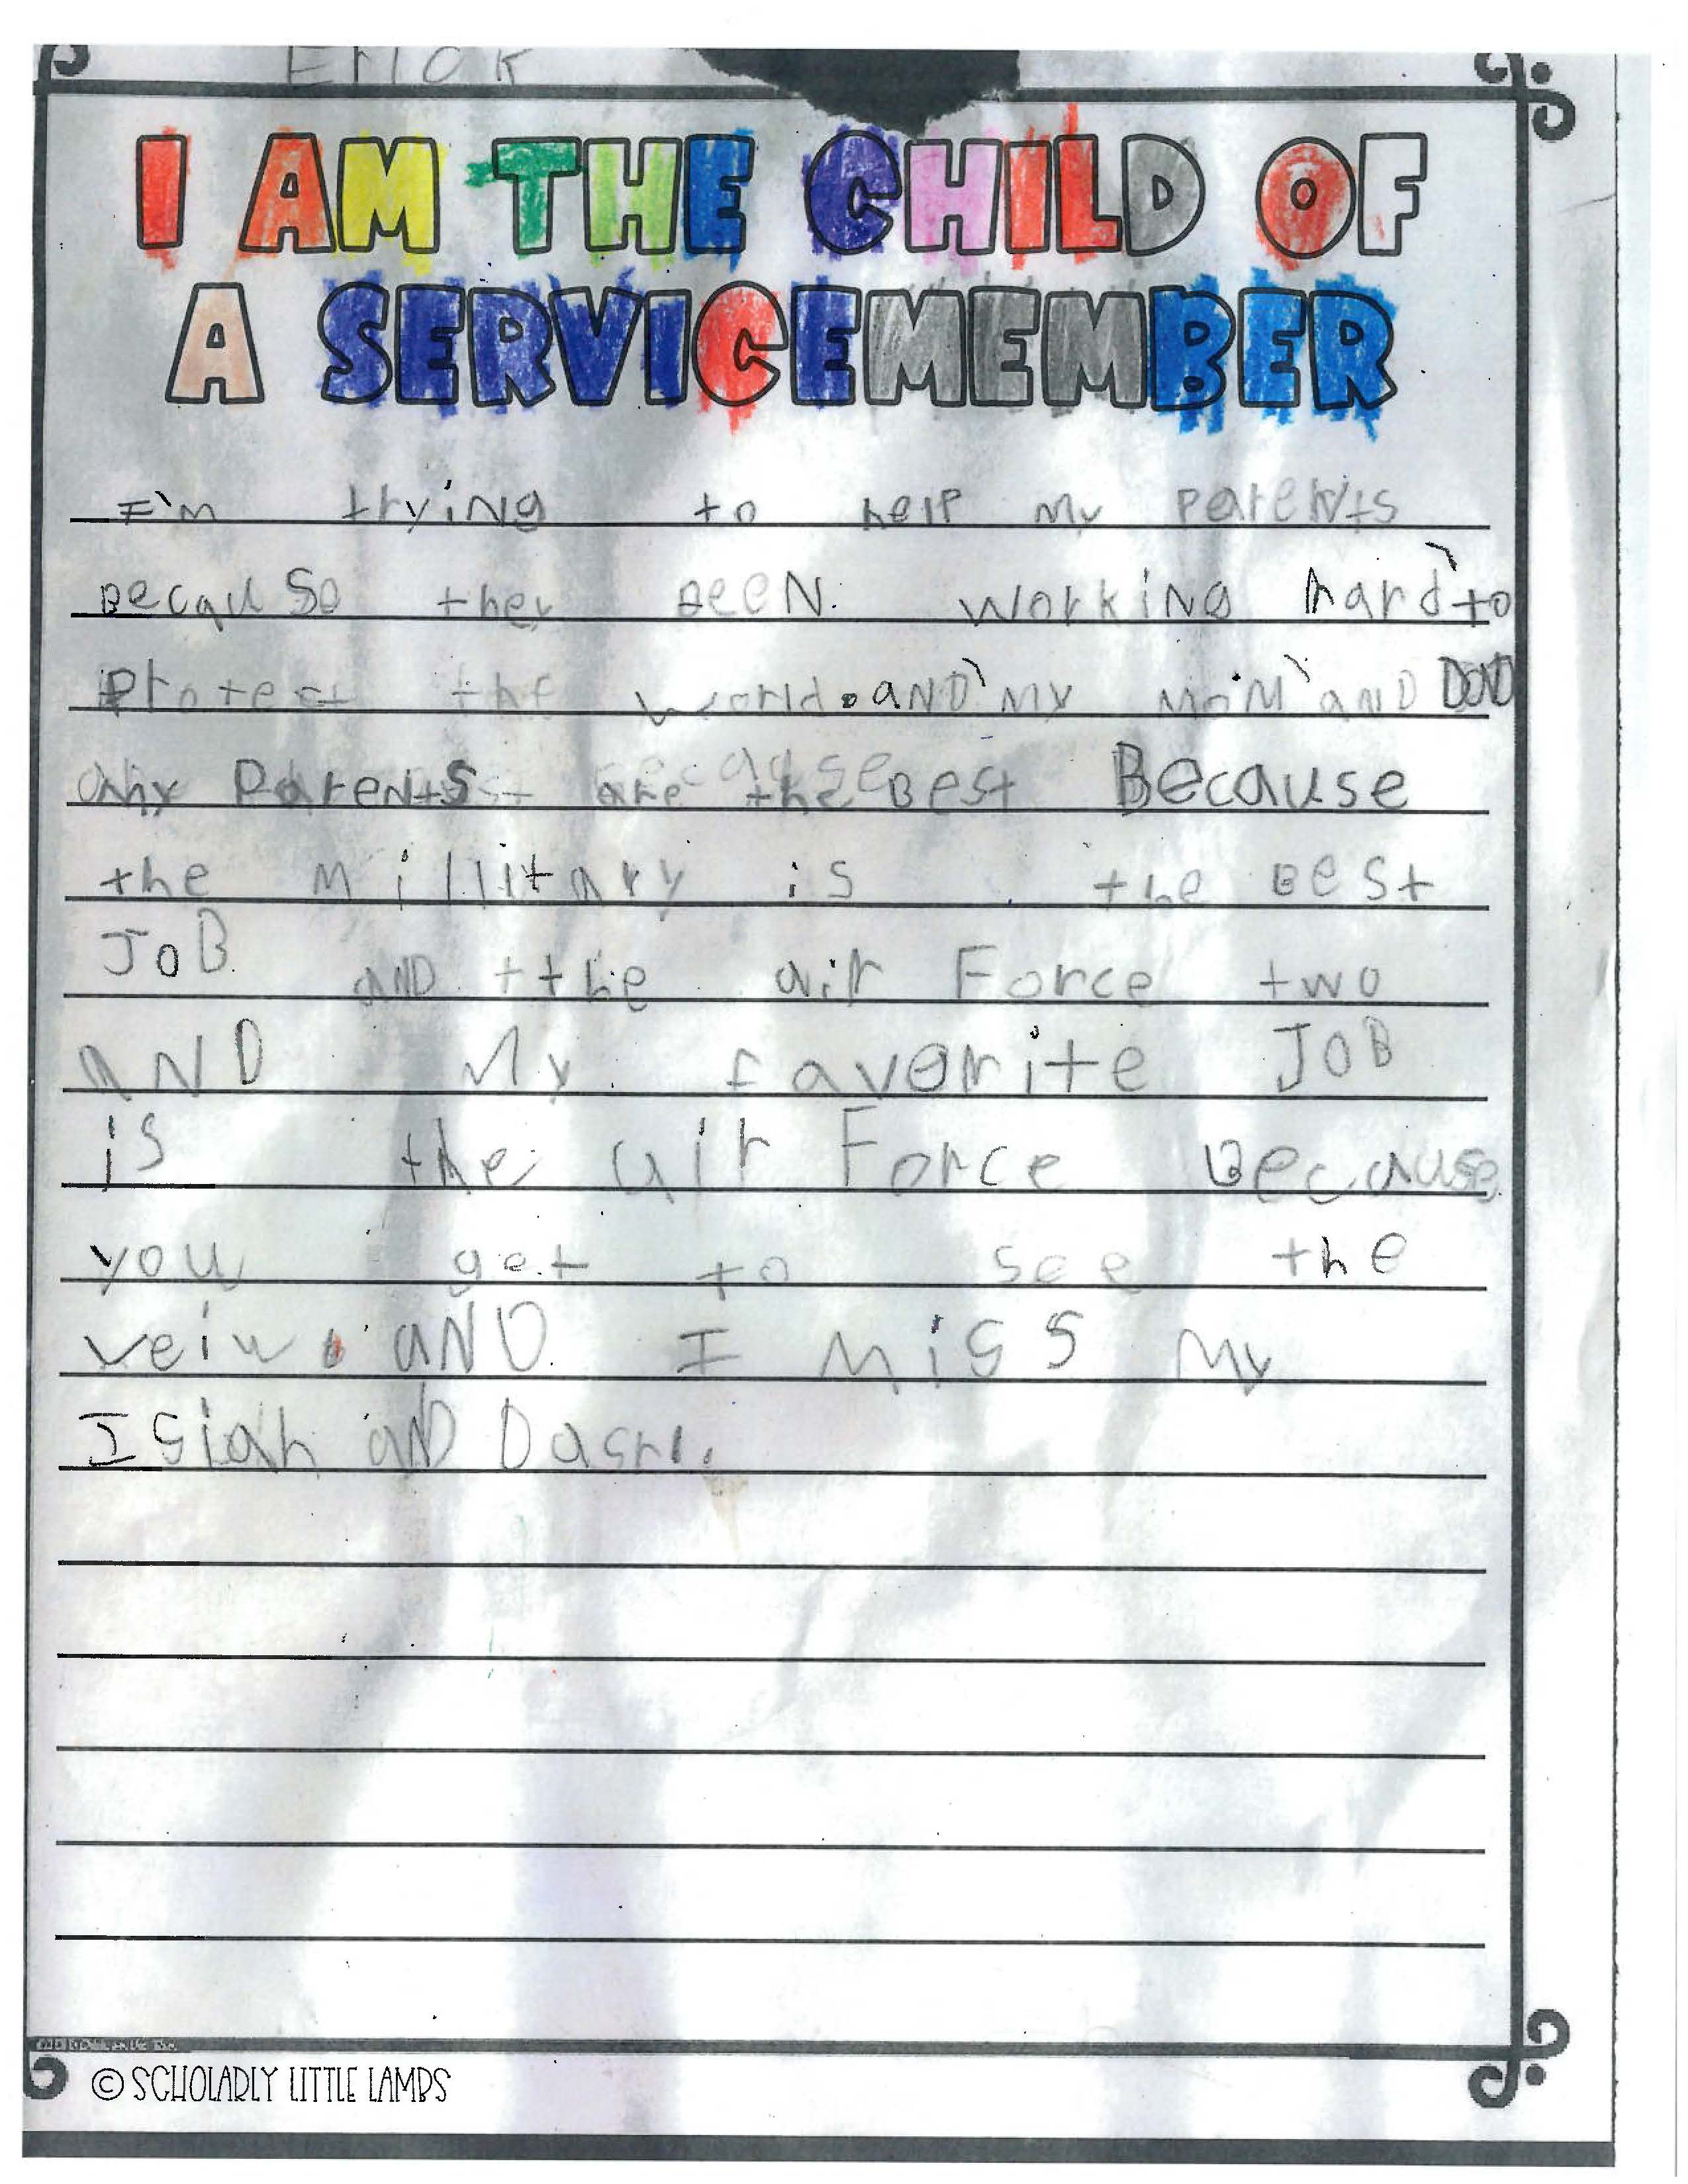 Erick
I AM THE CHILD OF
A SERVICEMEMBER
I'm trying to help my parents
Becauso they BeeN working hard to
Protect the world. aND my moM aND DaD
my ParentS are the Best Because
the millitary is the Best
JoB aND tthe air Force two
aND My favorite JOB
is the air Force Because
you get to see the
veiw. aND I miss my
Isiah aND
© SCHOLARLY LITTLE LAMBS